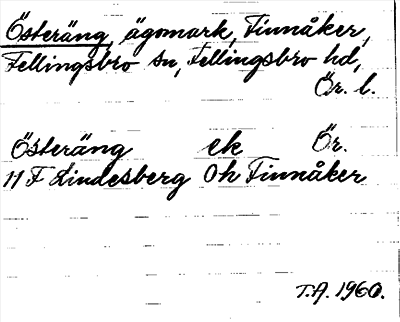 Österäng, ägomark, Finnåker,
Fellingsbro sn, Fellingsbro hd,
Ör. l.
Österäng ek Ör.
11 F Lindesberg 0h Finnåker
T.A. 1960.